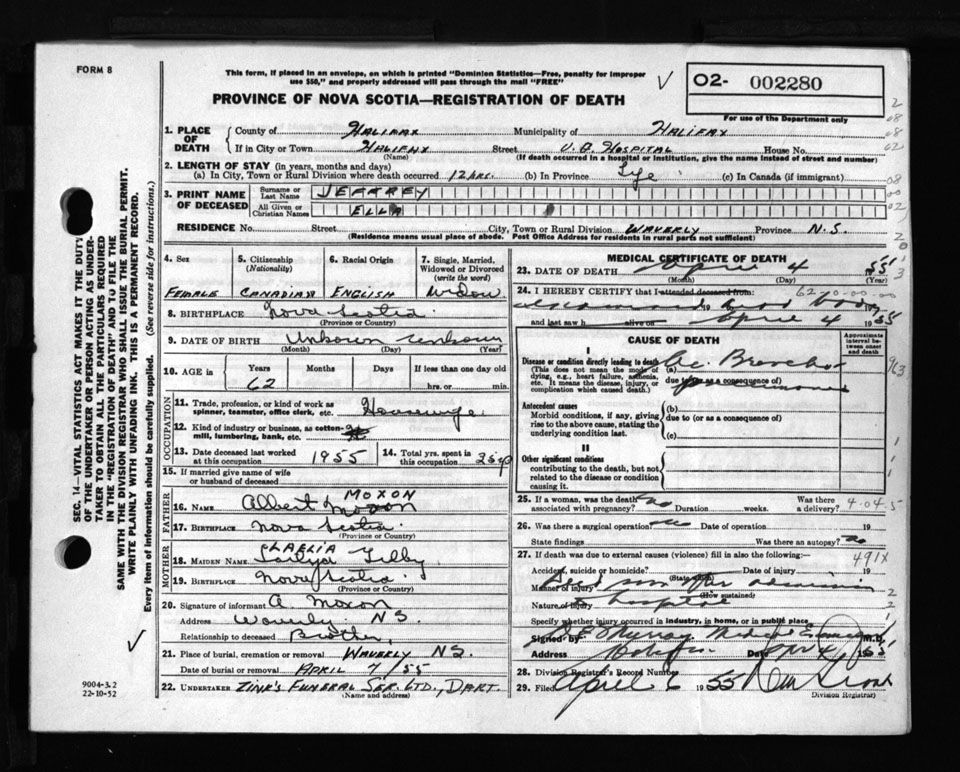 FORM 8
This form, if placed in an envelope, on which is printed "Dominion Statistics—Free, penalty for improper
use $50," and properly addressed will pass through the mail "FREE"
O2- 002280
PROVINCE OF NOVA SCOTIA—REGISTRATION OF DEATH
For use of the Department only
1. PLACE OF DEATH County of Halifax Municipality of Halifax
If in City or Town Halifax Street V.G. Hospital House No.
(Name) (If death occurred in a hospital or institution, give the name instead of street and number)
2. LENGTH OF STAY (in years, months and days)
(a) In City, Town or Rural Division where death occurred 12 hrs. (b) In Province (c) In Canada (if immigrant)
3. PRINT NAME OF DECEASED Surname or Last Name JEFFREY
All Given or Christian Names ELLA
RESIDENCE No. Street City, Town or Rural Division Waverly Province N.S.
(Residence means usual place of abode. Post Office Address for residents in rural parts not sufficient)
4. Sex 5. Citizenship (Nationality) 6. Racial Origin 7. Single, Married, Widowed or Divorced (write the word)
Female Canadian English Widow
8. BIRTHPLACE Nova Scotia
(Province or Country)
9. DATE OF BIRTH Unknown unknown
(Month) (Day) (Year)
10. AGE in Years Months Days If less than one day
62 hrs. or min.
OCCUPATION
11. Trade, profession or kind of work as
spinner, teamster, office clerk, etc. Housewife
12. Kind of industry or business, as cotton-
mill, lumbering, bank, etc.
13. Date deceased last worked at this occupation 1955 14. Total yrs. spent in this occupation
15. If married give name of wife
or husband of deceased
FATHER
MOXON
16. NAME Albert Moxon
17. BIRTHPLACE Nova Scotia
(Province or Country)
MOTHER
18. MAIDEN NAME Tilby
19. BIRTHPLACE Nova Scotia
(Province or Country)
20. Signature of informant A. Moxon
Address Waverly NS.
Relationship to deceased Brother
21. Place of burial, cremation or removal Waverly NS.
Date of burial or removal April 7/55
22. UNDERTAKER Zink's Funeral Ser. Ltd., Dart.
(Name and address)
MEDICAL CERTIFICATE OF DEATH
23. DATE OF DEATH April 4 55
(Month) (Day)
24. I HEREBY CERTIFY that I attended deceased from: 62-0-00-00
body
and last saw h alive on April 4 1955
CAUSE OF DEATH
Approximate interval between onset and death
I
Disease or condition directly leading to death (a) Ac. Broncho
(This does not mean the mode of
dying, e.g., heart failure, asthenia,
etc. It means the disease, injury, or
complication which caused death.)
due to (or as a consequence of) pneumonia
Antecedent causes
Morbid conditions, if any, giving
rise to the above cause, stating the
underlying condition last.
(b)
due to (or as a consequence of)
(c)
II
Other significant conditions
contributing to the death, but not
related to the disease or condition
causing it.
25. If a woman, was the death associated with pregnancy? no Duration weeks. Was there a delivery? 4-04-5
26. Was there a surgical operation? no Date of operation 19
State findings Was there an autopsy? no
27. If death was due to external causes (violence) fill in also the following:— 491X
Accident, suicide or homicide? Date of injury 19
(State which)
Manner of injury Died soon after admission
(How sustained)
Nature of injury to hospital
Specify whether injury occurred in industry, in home, or in public place
Signed by Murray Medical Examiner M.D.
Address Halifax Date April 4 1955
28. Division Registrar's Record Number
29. Filed April 6 1955
Division Registrar
SEC. 14—VITAL STATISTICS ACT MAKES IT THE DUTY
OF THE UNDERTAKER OR PERSON ACTING AS UNDER-
TAKER TO OBTAIN ALL THE PARTICULARS REQUIRED
IN THE "REGISTRATION OF DEATH" AND TO FILE THE
SAME WITH THE DIVISION REGISTRAR WHO SHALL ISSUE THE BURIAL PERMIT.
WRITE PLAINLY WITH UNFADING INK. THIS IS A PERMANENT RECORD.
Every item of information should be carefully supplied. (See reverse side for instructions.)
9004-3.2
22-10-52